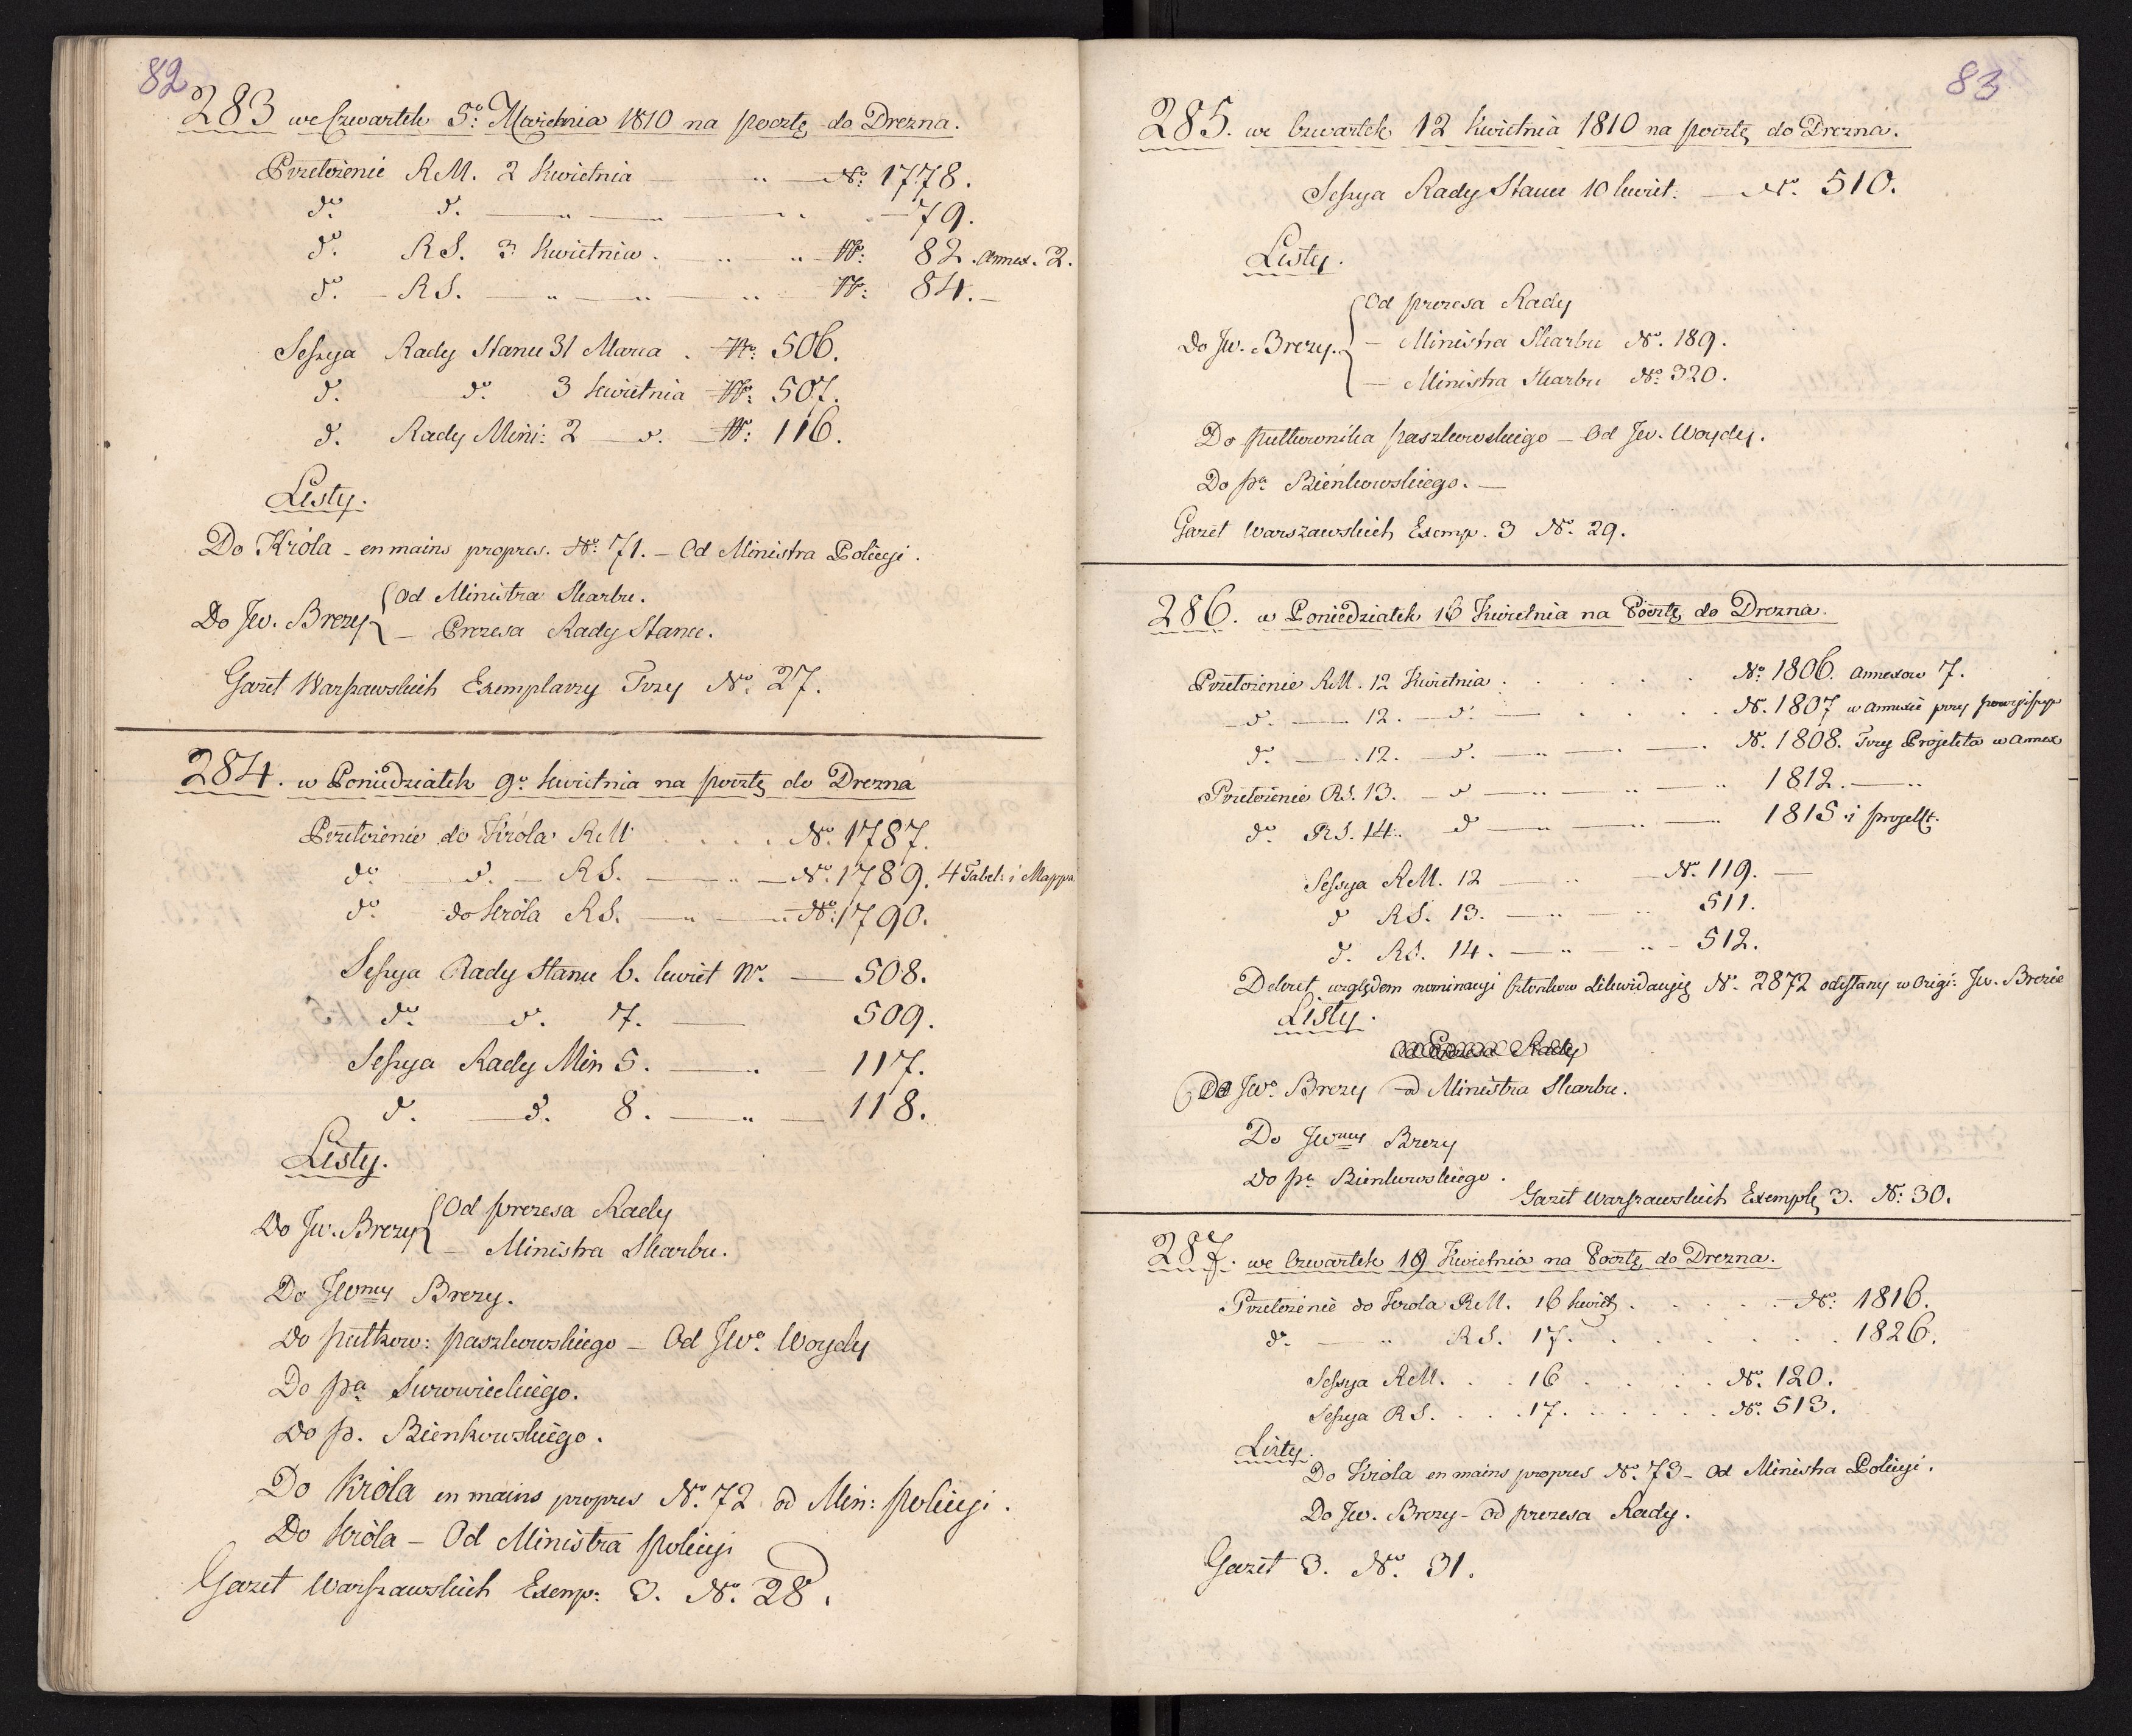 82
283 we Czwartek 5º Kwietnia 1810 na pocztę do Drezna.
Przełożenie R.M. 2 Kwietnia — „ — Nº: 1778.
dº d. — „ — — „ — 79.
dº R.S. 3 Kwietnia . — „ — „ Nº: 82. annex. 2.
dº. — R.S. — „ — „ — „ Nº: 84. —
Seszya Rady Stanu 31 Marca . Nº: 506.
d. dº 3 kwietnia Nº: 507.
d. Rady Mini: 2 — d. — Nº: 116.
Listy.
Do Króla - en mains propres. Nº: 71. — Od Ministra Policyi.
Do Jw. Brezy { Od Ministra Skarbu.
— Prezesa Rady Stanu.
Gazet Warszawskich Exemplarzy Trzy Nº 27.
284. w Poniedziałek 9º kwietnia na pocztę do Drezna
Przełożenie do Króla RM . . . . Nº 1787.
dº — d. — R.S. — „ — Nº: 1789. 4 Tabel: i Mappa
dº do Króla R.S. — „ — „ Nº: 1790.
Seszya Rady Stanu 6. kwiet Nº. — 508.
dº — d. 7. — 509.
Seszya Rady Min 5. — . — 117.
d. — d. 8. — „ — 118.
Listy.
Do Jw. Brezy { Od prezesa Rady
— Ministra Skarbu.
Do JWney Brezy.
Do pułkow: paszkowskiego — Od JWº Woydy
Do pa Surowieckiego.
Do p. Bienkowskiego.
Do Króla en mains propres Nº. 72 od Min: policyi.
Do Króla — Od Ministra policyi
Gazet Warszawskich Exemp: 3. Nº. 28.
83
285. we Czwartek 12 kwietnia 1810 na pocztę do Drezna.
Seszya Rady Stanu 10 kwiet: — Nº. 510.
Listy.
{ Od prezesa Rady
Do Jw. Brezy. — Ministra Skarbu Nº. 189.
— Ministra Skarbu Nº: 320.
Do pułkownika paszkowskiego — Od Jw. Woydy.
Do pa Bienkowskiego. —
Gazet Warszawskich Exemp. 3 Nº. 29.
286. w Poniedziałek 16 Kwietnia na Pocztę do Drezna.
Przełożenie RM. 12 Kwietnia . . . . . . Nº: 1806. annexow 7.
— d. — 12. — d. — . . . . Nº. 1807 w annexie przy
dº — 12. — d. — „ — . — Nº. 1808. Trzy Projekta w annex
Przełożenie RS. 13. — d — „ — „ — „ 1812. — „
dº RS. 14. d — „ — „ — 1815 i projekt.
Seszya RM. 12 — „ — Nº. 119. —
d RS. 13. — „ — „ 511.
d. RS. 14. — „ — „ - 512.
Dekret względem nominacyi Członkow Likwidacyię Nº. 2872 odesłany w Origi: Jw. Brezie
Listy.
Od Prezesa Rady
Do JWº. Brezy od Ministra Skarbu.
Do JWney Brezy
Do pa Bienkowskiego.
Gazet Warszawskich Exempl 3. Nº: 30.
287. we Czwartek 19 Kwietnia na Pocztę do Drezna.
Przełożenie do Krola RM. 16 kwiet . . . . . Nº: 1816.
dº — „ RS. 17. . . . . . . 1826.
Seszya RM. . . 16 . . . . . Nº. 120.
Seszya RS. . . . 17. . . . . . Nº. 513.
Listy.
Do Króla en mains propres Nº. 73 — Od Ministra Policyi.
Do Jw. Brezy - od prezesa Rady.
Gazet 3. Nº. 31.